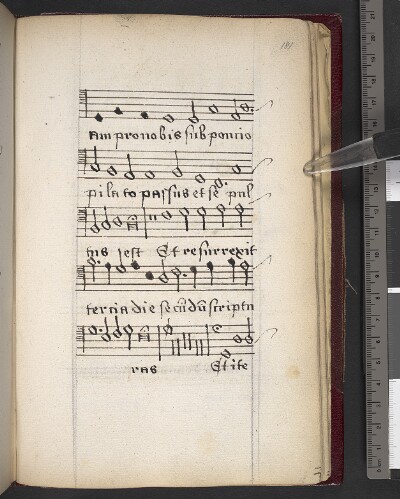 181
am pro nobis sub poncio
pilato passus et se pul
tus est Et resurrexit
tercia die secũdũ scriptu
ras Et ite